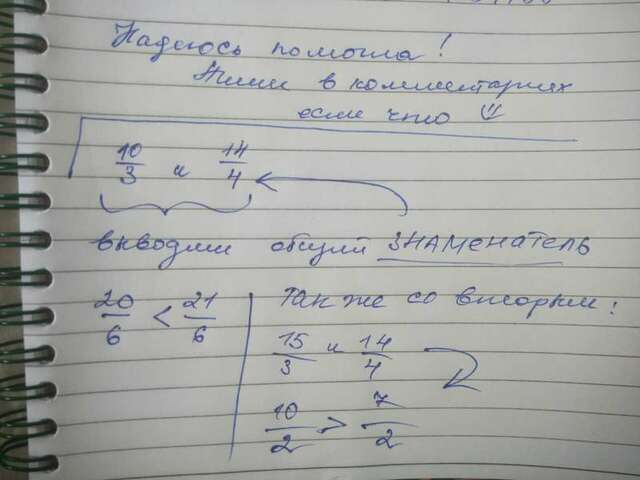 Надеюсь помогла!
Пиши в комментариях
если что
10/3 и 14/4
выводим общий ЗНАМЕНАТЕЛЬ
20/6 < 21/6
Так же со вторым:
15/3 и 14/4
10/2 > 7/2